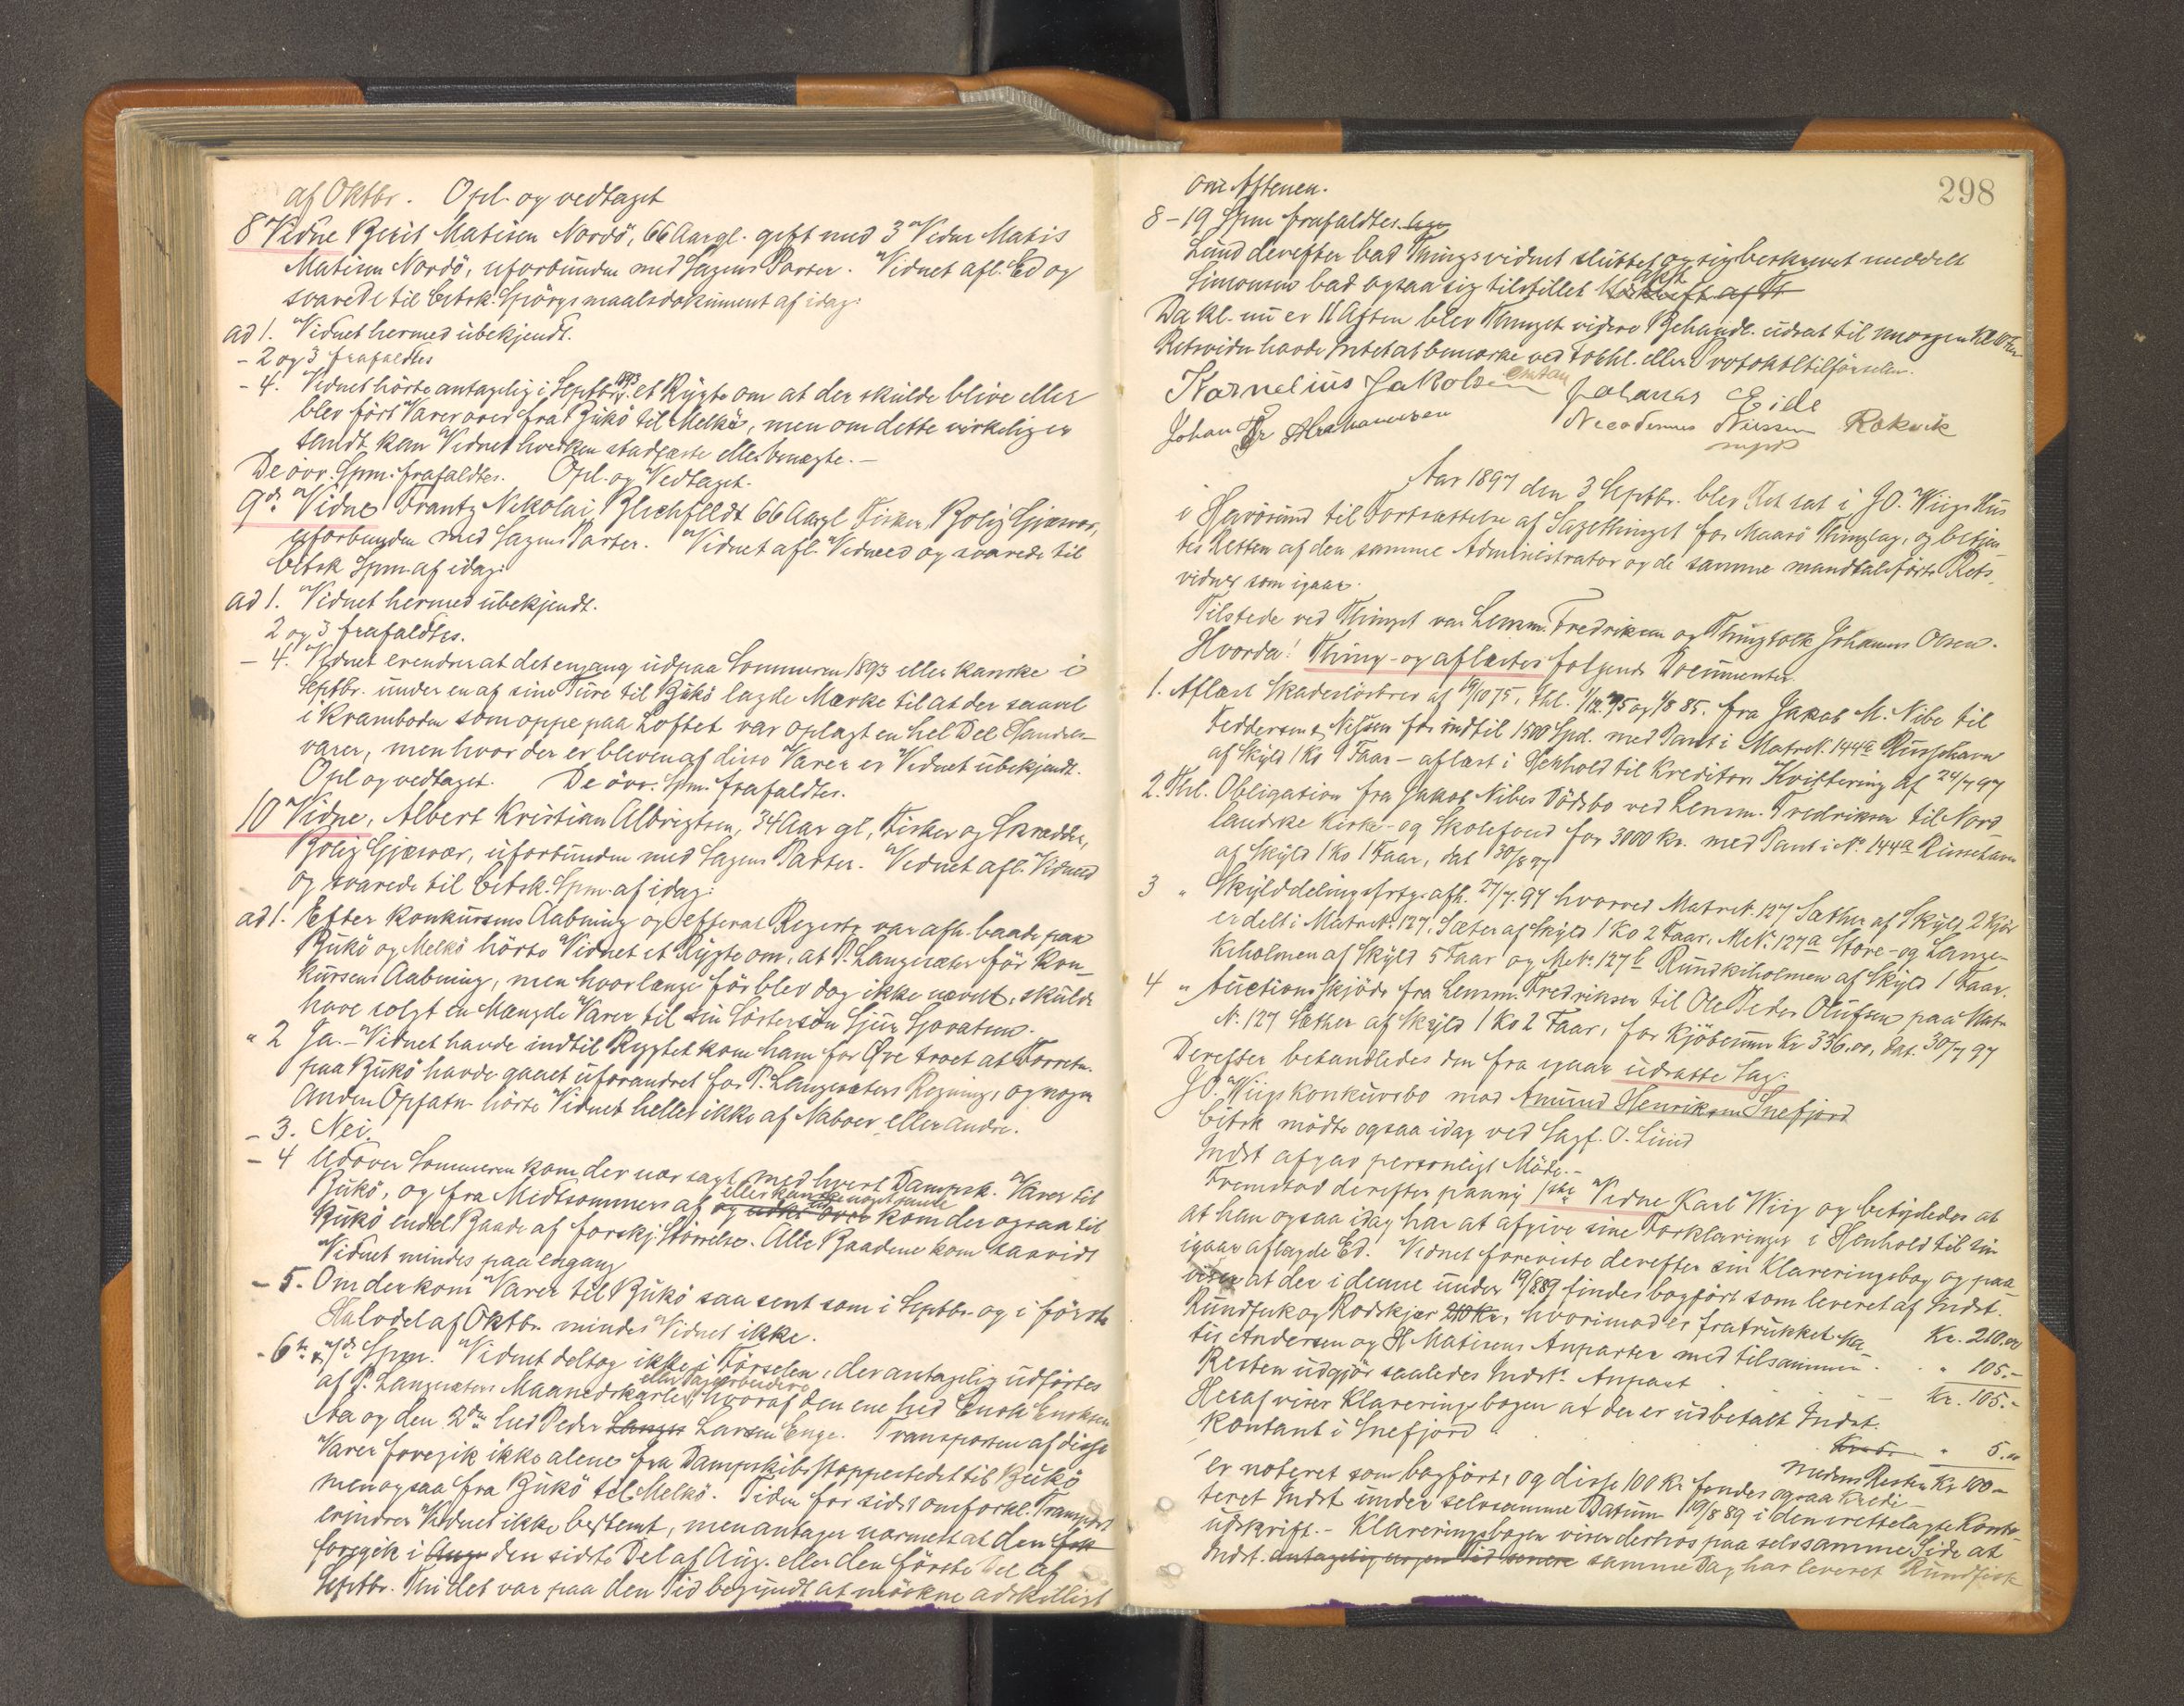 af Oktbr. Opl. og vedtaget
8 Vidne Berit Matisen Nordö, 66 Aar gl. gift med 3 Vidne Matis
Matisen Nordö, uforbunden med Sagens Parter. Vidnet afl. Ed og
svarede til Citsk. Spörgsmaalsdokument af idag:
ad 1. Vidnet hermed ubekjendt.
- 2 og 3 frafaldtes
- 4. Vidnet hörte antagelig i Septbr. 1893 et Rygte om at der skulde blive eller
blev fört Varer over fra Bukö til Melkö, men om dette virkelig er
sandt kan Vidnet hverken stadfæste eller benægte. -
De övr. Spm. frafaldtes. Opl. og Vedtaget.
9de Vidne Frantz Nikolai Blichfeldt 66 Aar gl Fisker, Bolig Gjæsvær,
uforbunden med Sagens Parter. Vidnet afl. Vidneed og svarede til
Citsk Spm. af idag:
ad 1. Vidnet hermed ubekjendt.
2 og 3 frafaldtes.
- 4. Vidnet erindrer at det engang udpaa Sommeren 1893 eller kanske i
Septbr. under en af sine Ture til Bukö lagde Mærke til at der saavel
i Kramboden som oppe paa Loftet var oplagt en hel Del Handels-
varer, men hvor der er bleven af disse Varer er Vidnet ubekjendt.
Opl og vedtaget. De övr. Spm. frafaldtes.
10 Vidne, Albert Kristian Albrigtsen, 34 Aar gl, Fisker og Skrædder,
Bolig Gjæsvær, uforbunden med Sagens Parter. Vidnet afl. Vidneed
og svarede til Citsk. Spm. af idag:
ad 1. Efter Konkursens Aabning og efterat Registr. var afh. baade paa
Bukö og Melkö hörte Vidnet et Rygte om, at P. Langsæter för Kon-
kursens Aabning, men hvorlænge för blev dog ikke nævnt, skulde
have solgt en Mængde Varer til sin Söstersön Sjur Sjovatsen.
" 2 Ja. - Vidnet havde indtil Rygtet kom ham for Øre troet at Forretn.
paa Bukö havde gaaet uforandret for P. Langsæters Regning, og nogen
Anden Opfatn. hörte Vidnet heller ikke af Naboer eller andre.
- 3. Nei.
- 4 Udover Sommeren kom der uor sagt med hvert Dampsk. Varer til
Bukö, og fra Midtsommers af eller kanske noget senere
og udk. over kom der ogsaa til
Bukö endel Baade af forskj. Störrelse. Alle Baadene kom saavidt
Vidnet mindes paa engang
- 5. Om der kom Varer til Bukö saa sent som i Septbr. og i förste
Halvdel af Oktbr. mindes Vidnet ikke.
- 6te & 7de Spm. Vidnet deltog ikke i Förselen, der antagelig udförtes
af P. Langsæters Maanedskarle, eller Dagarbeidere hvoraf den ene hed Enok Enoksen
Aa og den 2den hed Peder Langs Larsen Enge. Transporten af disse
Varer foregik ikke alene fra Dampskibsstoppestedet til Bukö
men ogsaa fra Bukö til Melkö. Tiden for sidst omforkl. Transport
erindrer Vidnet ikke bestemt, men antager nærmest at den
foregik i Aug den sidste Del af Aug. eller den förste Del af
Septbr. Thi det var paa den Tid begyndt at mörkne adskilligt
298
om Aftenen.
8 - 19 Spm frafaldtes.
Lund derefter bad Thingsvidnet sluttet og sig beskrevet meddelt
Simonsen bad ogsaa sig tilstillet
Da Kl. nu er 11 Aften blev Thinget videre Behandl. udsat til imorgen Kl 10 Fm
Retsvidn havde Intet at bemærke ved Forhl. eller Protokoltilförselen.
Kornelius Jakobsen Johannes Eide
Johan Pr Abrahamsen Nicodemus Nilssen Rokvik
Aar 1897 den 3 Septbr. blev Ret sat i J. O. Wiigs Hus
i Havösund til Fortsættelse af Sagethinget for Maasö Thinglag, og betjen-
tes Retten af den samme Administrator og de samme mandtalsförte Rets-
vidner som igaar.
Tilstede ved Thinget var Lensm. Fredriksen og Thingtolk Johannes Olsen.
Hvorda! Thing- og aflæstes fölgende Documenter
1. Aflæst Skadeslösbrev af 19/10 75, thl. 1/12. 75 og 1/8 85. fra Jakob M. Nibe til
Feddersen & Nilssen for indtil 1500 Spd. med Pant i Matr. N. 144a Russehavn
af Skyld 1 Ko 9 Faar - aflæst i Henhold til Kreditors Kvittering af 24/7 97
2. Thl. Obligation fra Jakob Nibes Dödsbo ved Lensm. Fredriksen til Nord-
landske Kirke- og Skolefond for 3000 Kr. med Pant i No 144a Russehavn
af Skyld 1 Ko 1 Faar, dat 30/8 97
3 " Skylddelingsfrtg. afh. 27/7. 97 hvorved Matr. N. 127 Sæther af Skyld 2 Kjör
er delt i Matr. N. 127, Sæter af Skyld 1 Ko 2 Faar, M. N. 127a Store- og Lange-
kiholmen af Skyld 5 Faar og M. N. 127b Rundkiholmen af Skyld 1 Faar.
4 " Auctionsskjöde fra Lensm. Fredriksen til Ole Peder Olufsen paa Matr.
N. 127 Sæther af Skyld 1 Ko 2 Faar, for Kjöbesum Kr 336.00, dat. 30/7 97
Derefter behandledes den fra igaar udsatte Sag:
J. O. Wiigs Konkursbo mod Amund Henriksen Snefjord
Citsk mödte ogsaa idag ved Sagf. O. Lund
Indst afgav personligt Möde. -
Fremstod derefter paany 1ste Vidne Karl Wiig og betydedes at
at han ogsaa idag har at afgive sine Forklaringer i Henhold til sin
igaar aflagde Ed. Vidnet foreviste derefter sin Klareringsbog og paa-
viser at der i denne under 19/8 89 findes bogfört som leveret af Indst.
Rundfisk og Rodskjær 210 Kr, Kr. 210.00
hvorimod er fratrukket Ma-
tis Andersen og H Matisens Anparter med tilsammen . . " 105.-
Resten udgjör saaledes Indsts Anpart Kr. 105.-
Heraf viser Klareringsbogen at der er udbetalt Indst.
Kontant i Snefjord . . . " 5.00
medens Resten Kr 100 -
er noteret som bogfört, og disse 100 Kr. fandes ogsaa kredi-
teret Indst under selvsamme Datum 19/8 89 i den irettelagte Konto-
udskrift. - Klareringsbogen viser derhos paa selvsamme Side at
Indst. antagelig nogen Tid senere samme Dag har leveret Rundfisk